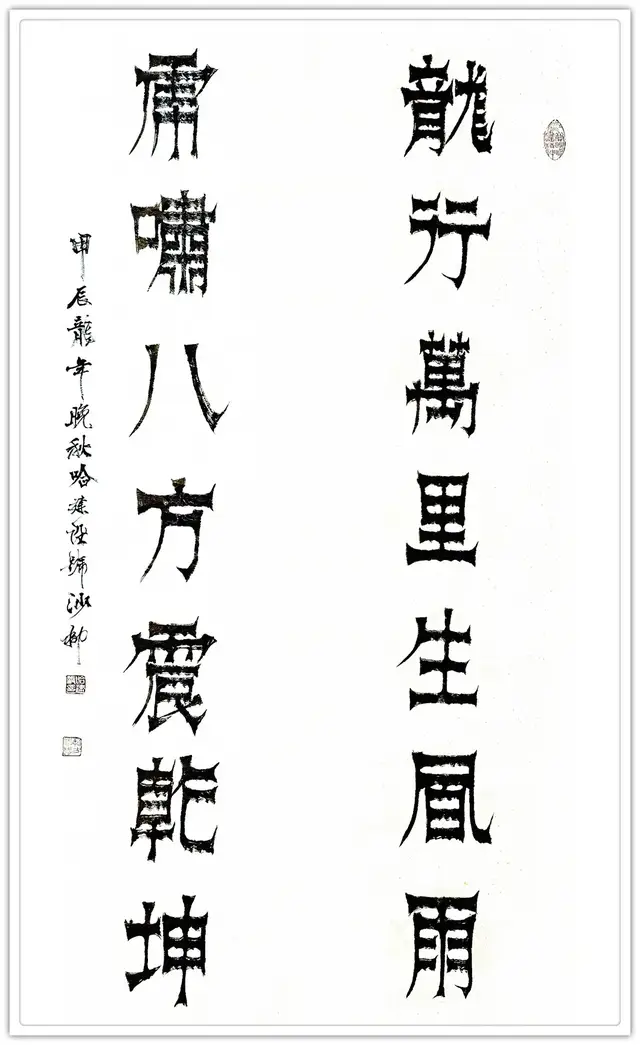 龍行萬里生風雨
虎嘯八方震乾坤
甲辰龍年晚秋哈沙柳